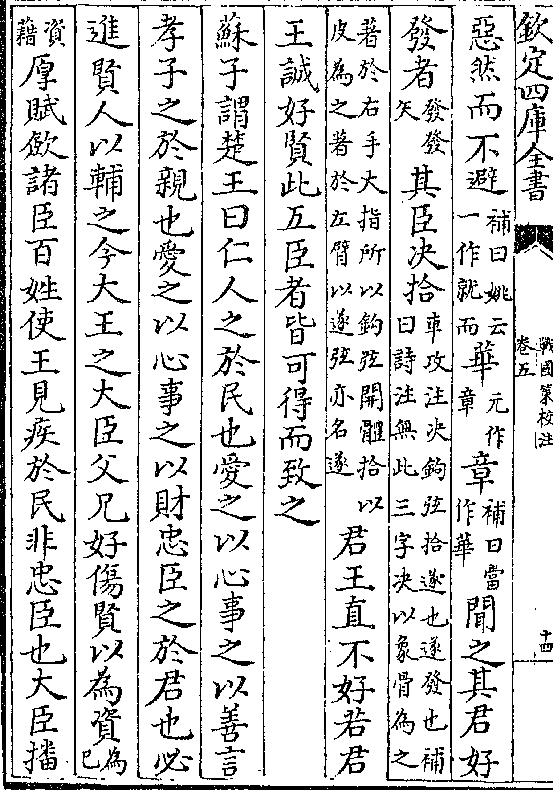 欽定四庫全書
戰國策校注
卷五
十四
惡然而不避補曰姚云一作就而華元作章章補曰當作華聞之其君好
發者發發矢其臣决拾車攻注决鉤弦拾遂也遂發也補曰詩注無此三字决以象骨為之
著於右手大指所以鉤弦開體拾以皮為之著於左臂以遂弦亦名遂君王直不好若君
王誠好賢此五臣者皆可得而致之
蘇子謂楚王曰仁人之於民也愛之以心事之以善言
孝子之於親也愛之以心事之以財忠臣之於君也必
進賢人以輔之今大王之大臣父兄好傷賢以為資為己
資藉厚賦斂諸臣百姓使王見疾於民非忠臣也大臣播